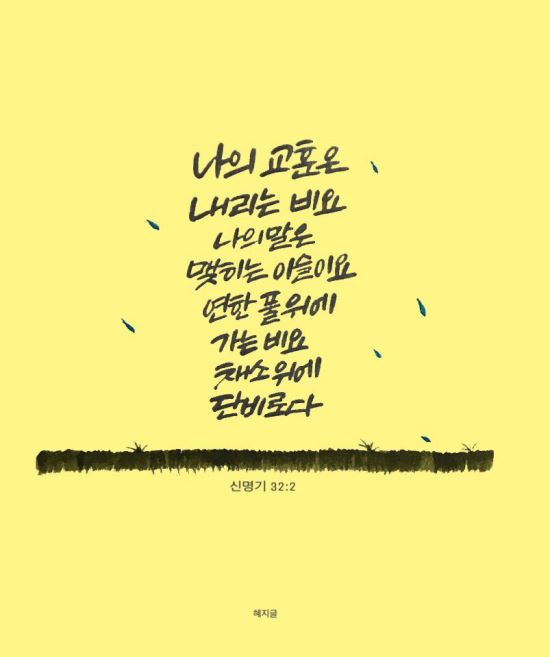 나의 교훈은
내리는 비요
나의말은
맺히는 이슬이요
연한 풀위에
가는 비요
채소위에
단비로다
신명기 32:2
혜지글